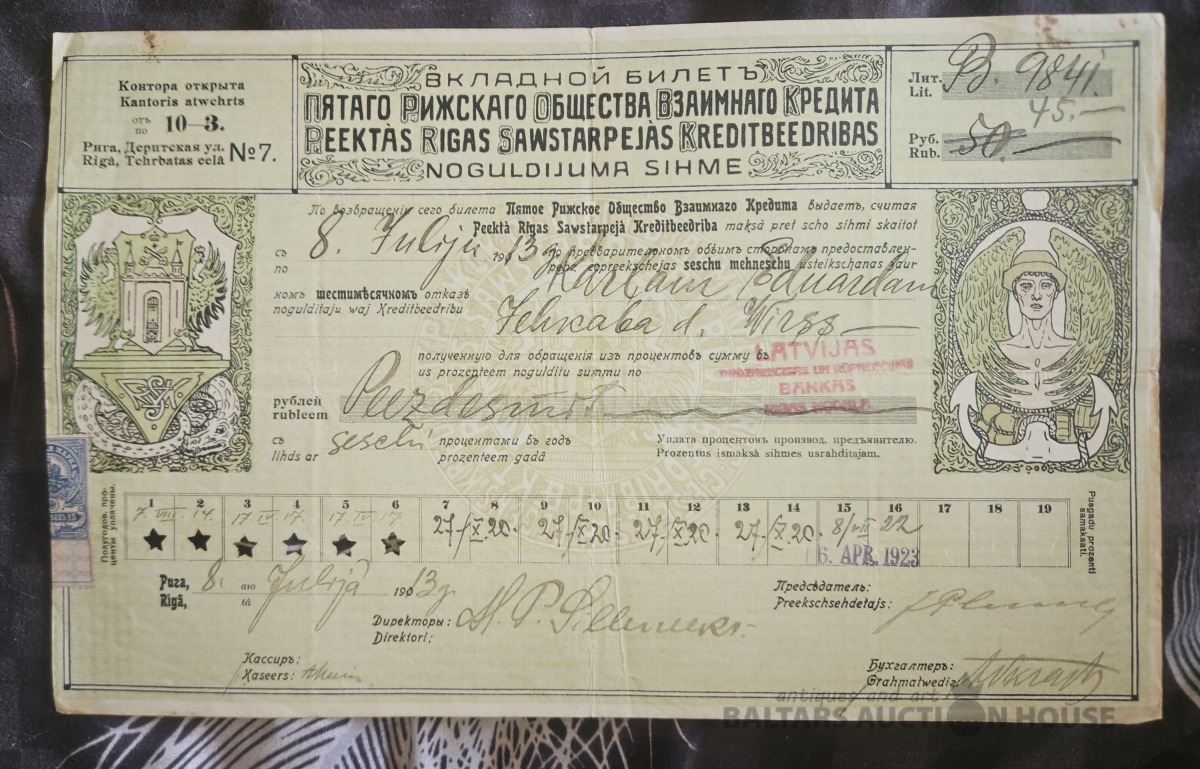 Контора открыта
Kantoris atwehrts
отъ
no 10–3.
Рига, Дерптская ул.
Rigâ, Tehrbatas eelâ №7.
ВКЛАДНОЙ БИЛЕТЪ
ПЯТАГО РИЖСКАГО ОБЩЕСТВА ВЗАИМНАГО КРЕДИТА
PEEKTÀS RIGAS SAWSTARPEJÀS KREDITBEEDRIBAS
NOGULDIJUMA SIHME
Лит.
Lit. B. 9841.
45.—
Руб.
Rub. 50.—
По возвращеніи сего билета Пятое Рижское Общество Взаимнаго Кредита выдаетъ, считая
Peektà Rigas Sawstarpejà Kreditbeedriba maksà pret scho sihmi skaitot
съ
no 8. Julijà 1913 g. по предварительномъ обѣимъ сторонамъ предоставлен-
pehz eepreekschejas seschu mehneschu usteikschanas zaur
номъ шестимѣсячномъ отказѣ
nogulditaju waj Kreditbeedribu
Kahrlam Eduardam
Jehkaba d. Wirss
полученную для обращенія изъ процентовъ сумму въ
us prozenteem nogulditu summu no
LATVIJAS
BANKAS
RIGAS NODAĻA
рублей
rubleem Peezdesmit
съ
lihds ar seschi процентами въ годъ
prozenteem gadâ
Уплата процентовъ производ. предъявителю.
Prozentus ismaksà sihmes usrahditajam.
Полугодов. проценты уплачены.
1 2 3 4 5 6 7 8 9 10 11 12 13 14 15 16 17 18 19
27./X.20. 27./X.20. 27./X.20. 27./X.20. 8/VII 22
6. APR. 1923
Pusgadu prozenti samaksati.
Рига,
Rigâ, 8. аго
tà Julijà 1913 g.
Директоры:
Direktori:
Предсѣдатель:
Preekschsehdetajs:
Кассиръ:
Kaseers:
Бухгалтеръ:
Grahmatwedis:
antiques and art
BALTARS AUCTION HOUSE